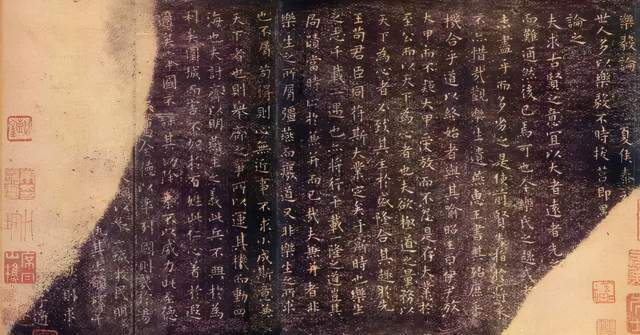 樂毅論　夏侯泰
世人多以樂毅不時拔莒即
論之
夫求古賢之意宜以大者遠者先
而難通然後已焉可也今樂氏之趣或
未盡乎而多劣之是使前賢失指於將來
不亦惜哉觀樂生遺燕惠王書其殆庶乎
機合乎道以終始者與其喻昭王曰伊尹放
大甲而不疑大甲受放而不怨是存大業於
至公而以天下為心者也夫欲極道之量務以
天下為心者必致其主於盛隆合其趣於先
王苟君臣同符斯大業定矣于斯時也樂生
之志千載一遇也亦將行千載一隆之道豈其
局蹟當時止於兼并而已哉夫兼并者非
樂生之所屑彊燕而廢道又非樂生之所求
也不屑苟得則心無近事不求小成斯意兼
天下者也則舉齊之事所以運其機而動四
海也夫討齊以明燕主之義此兵不興於為
利矣圍城而害不加於百姓此仁心著於遐
邇矣舉國不謀其功除暴不以威力此至德
全德以率列國則幾於湯
以縱二城收民明